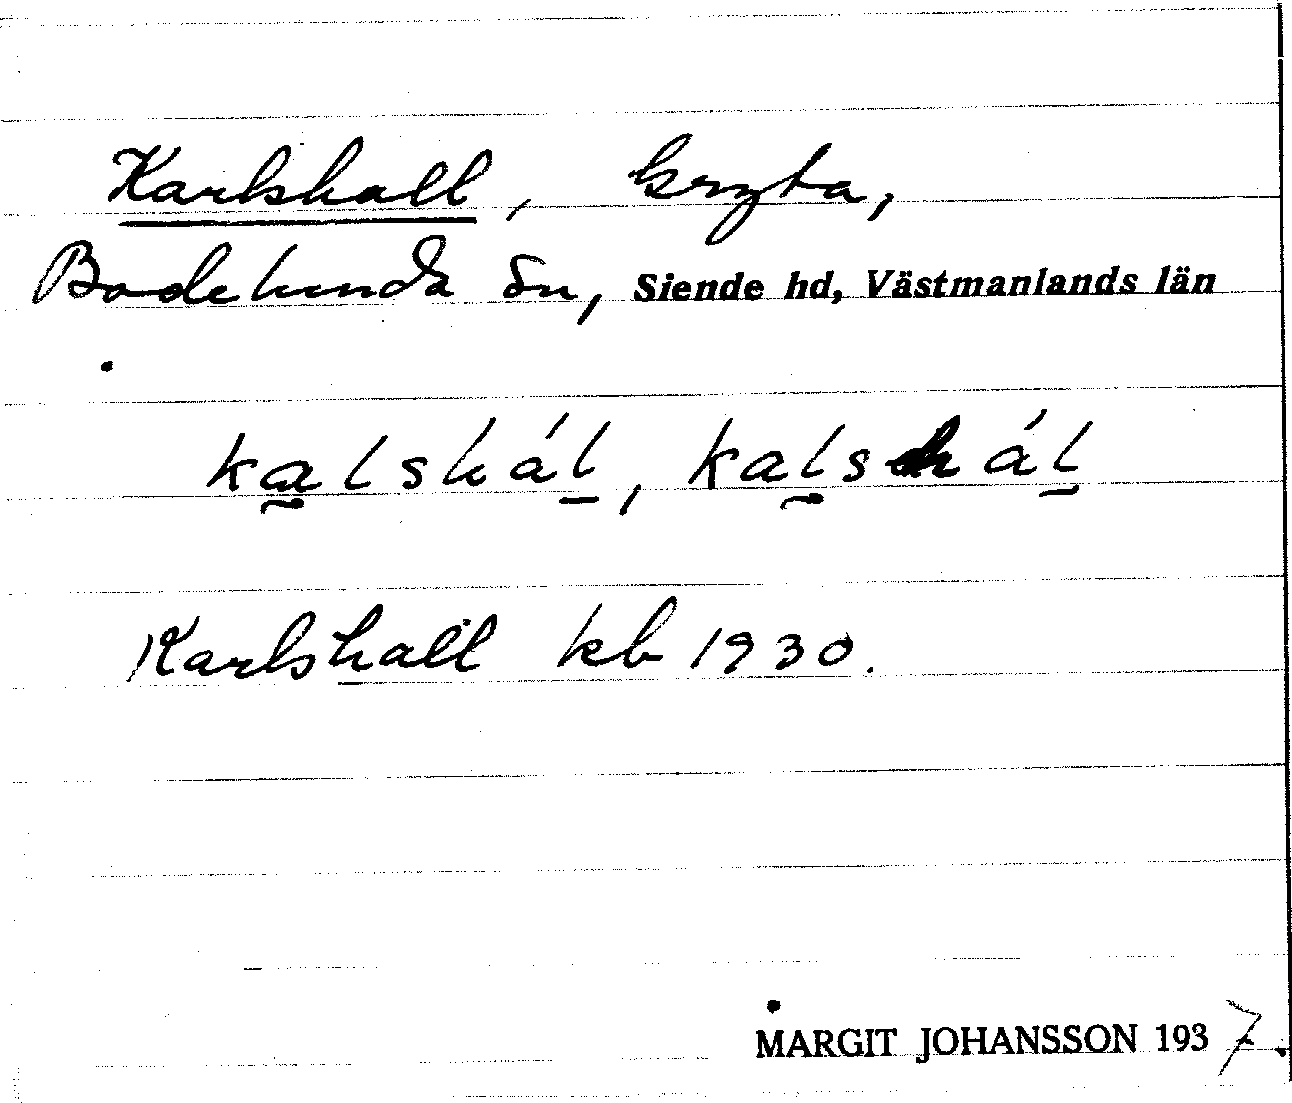 Karlshall, krzta,
Badelunda sn, Siende hd, Västmanlands län
kalshál, kalshál
Karlshall kb 1930.
MARGIT JOHANSSON 1937.